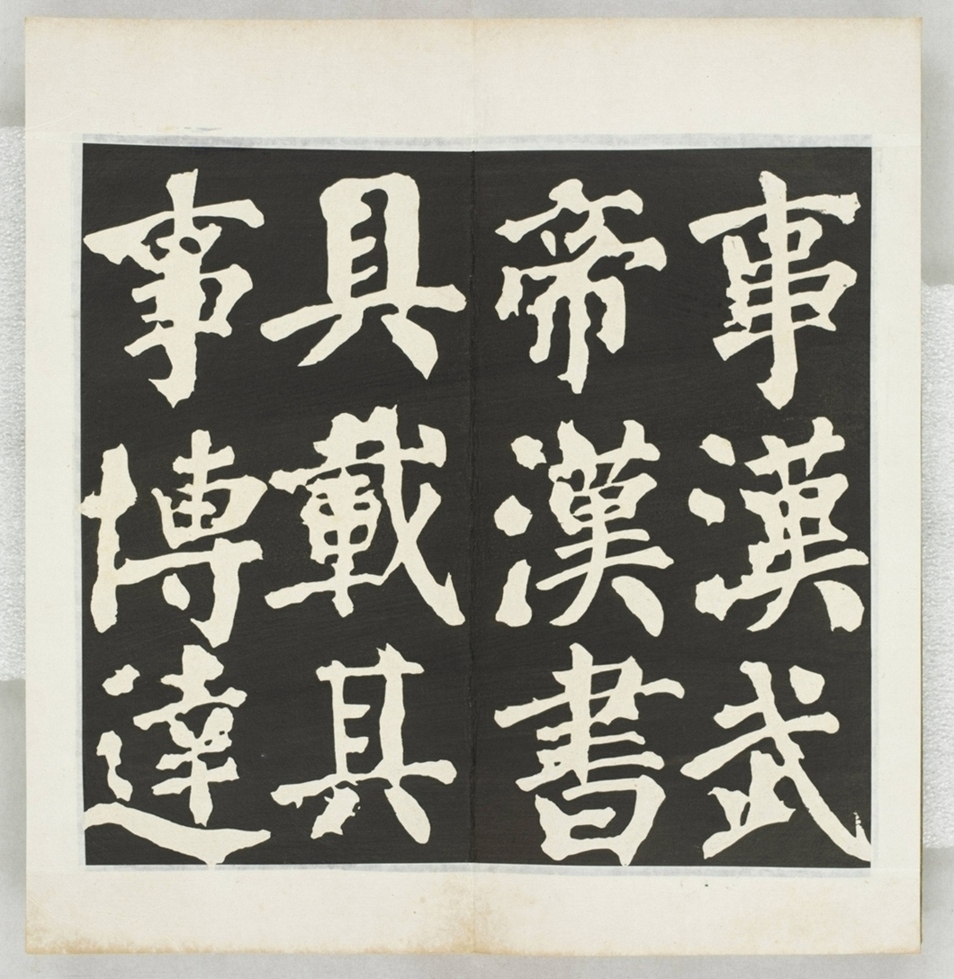 事漢武
帝漢書
具載其
事博達